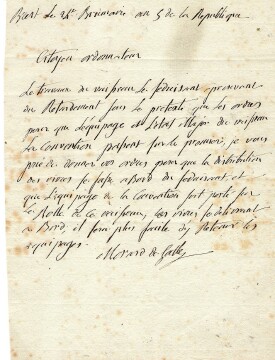 Brest le 24 Brumaire an 5 de la Republique
Citoyen ordonnateur
Les travaux du vaisseau le Puissant eprouvent
du Retardement sous le pretexte que les ordres
pour que l'équipage et l'etat Major du vaisseau
La Convention passent sur le premier, je vous
prie de donner vos ordres pour que la distribution
des vivres se fasse à Bord du
que L'équipage de la Convention soit porté sur
Le Rolle de ce vaisseau, les vivres se delivrant
à Bord, il sera plus facile d'y Retenir les
équipages.
Morard de Galles